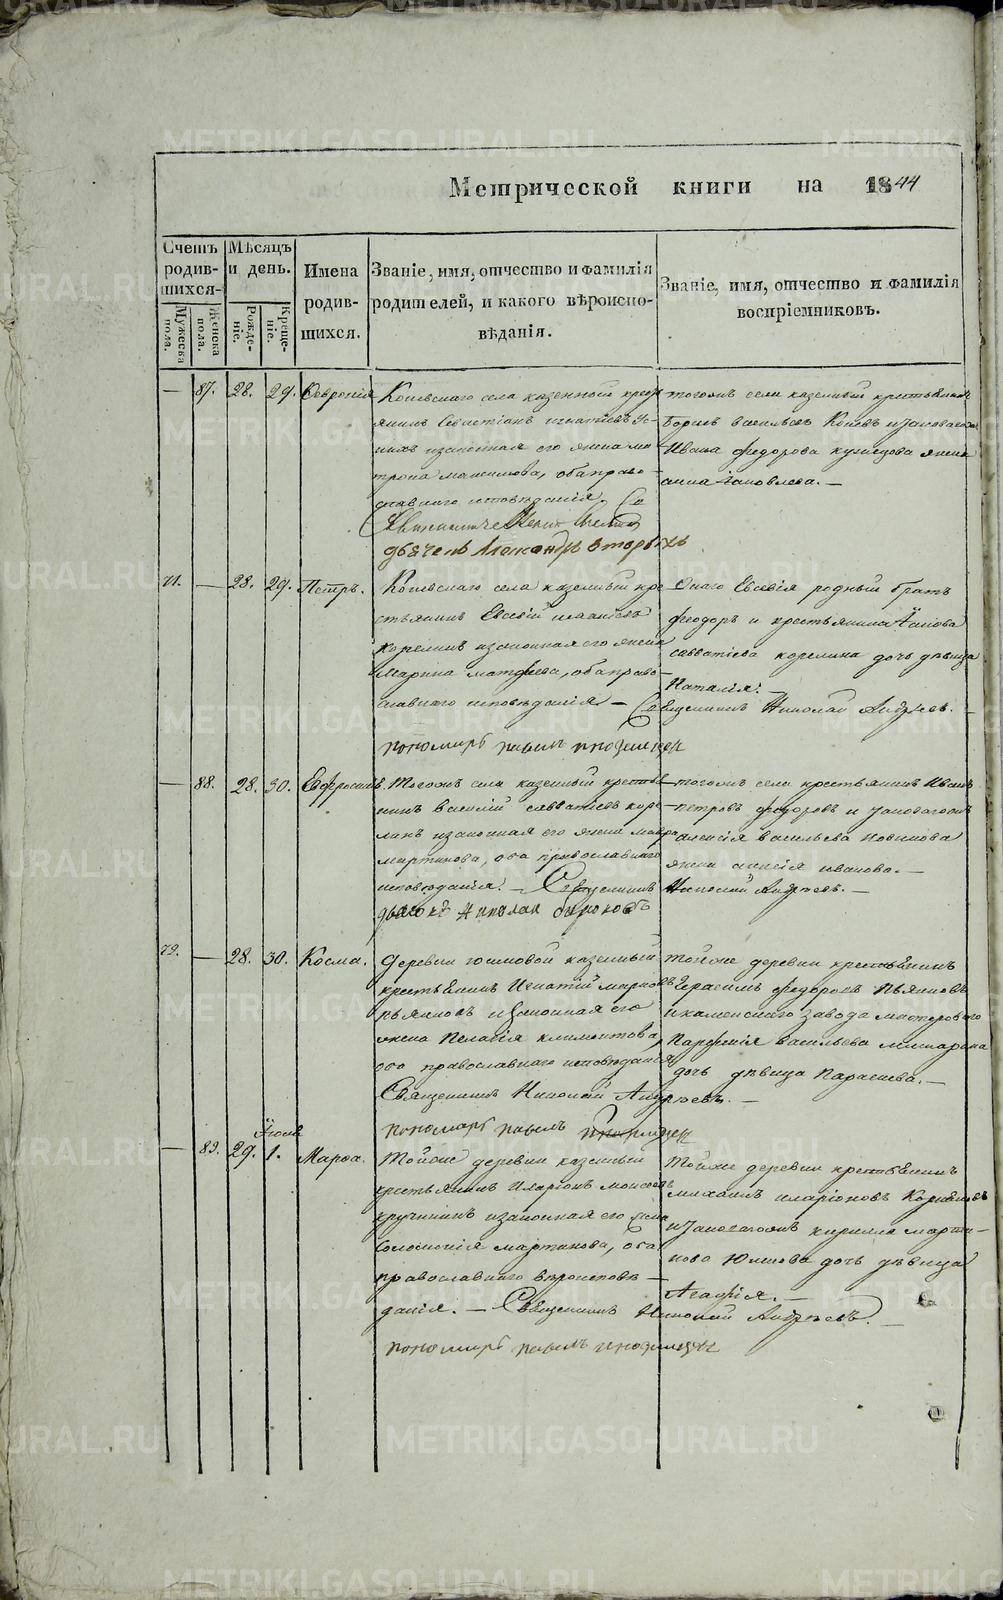 Метрической книги на 1844
Счетъ родив-шихся.
Мужеска пола.
Женска пола.
Мѣсяцъ и день.
Рожде-ніе.
Креще-ніе.
Имена родив-шихся.
Званіе, имя, отчество и фамилія
родителей, и какого вѣроиспо-
вѣданія.
Званіе, имя, отчество и фамилія
воспріемниковъ.
— 87. 28. 29. Февронія
села казенный крес
янинъ Севастіанъ Игнатіевъ
законная его жена Ма
трона Максимова, оба право-
славнаго исповѣданія.
Александръ Вторыхъ
тогожъ села казенный крестьянинъ
Борисъ Васильевъ Коневъ и
Ивана Федорова Кузнецова жена
Анна Іаковлева. —
71. — 28. 29. Петръ.
села казенный кре
стьянинъ Евсевій
Корелинъ и законная его жена
Марина Матфеева, оба право-
славнаго исповѣданія —
Священникъ Николай Андреевъ. —
пономарь Павелъ
Онаго Евсевія родный братъ
Феодоръ и крестьянина Іакова
Савватіева Корелина дочь дѣвица
Наталія. —
— 88. 28. 30. Евфросинія
Тогожъ села казенный крестья
нинъ Василій Савватіевъ Коре
линъ и законная его жена Мавра
Мартинова, оба православнаго
исповѣданія. — Священникъ
Николай Андреевъ. —
дьячокъ Николай
тогожъ села крестьянинъ Иванъ
Петровъ Федоровъ и
Алексія Васильева Новикова
жена Анисія Иванова. —
72. — 28. 30. Косма.
Деревни казенный
крестьянинъ Игнатій Марковъ
Пьянковъ и законная его
жена Пелагія Климонтова,
оба православнаго исповѣданія
Священникъ Николай Андреевъ. —
пономарь Павелъ
тойже деревни крестьянинъ
Герасимъ Федоровъ Пьянковъ
и Каменскаго завода мастероваго
Парфенія Васильева
дочь дѣвица Параскева. —
Іюля
— 89. 29. 1. Марѳа.
Тойже деревни казенный
крестьянинъ Иларіонъ Моисеевъ
Кручининъ и законная его жена
Соломонія Мартинова, оба
православнаго вѣроисповѣ-
данія. — Священникъ Николай Андреевъ. —
пономарь Павелъ
Тойже деревни крестьянинъ
Михаилъ Иларіоновъ
Кирилла Марти-
нова Юшкова дочь дѣвица
Агафія. —
METRIKI.GASO-URAL.RU